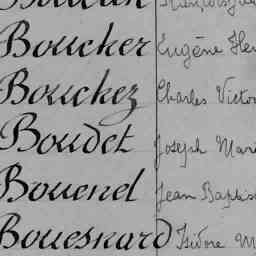 Boucher Eugène
Bouchez Charles Victor
Boudet Joseph Marie
Bouenel Jean Baptis
Bouesnard Isidore M